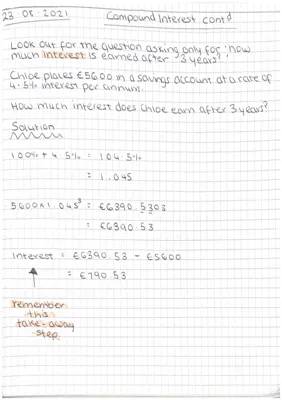 23.08.2021 Compound Interest cont'd
Look out for the question asking only for 'how
much interest is earned after '3 years'!
Chloe places €5600 in a savings account at a rate of
4.5% interest per annum.
How much interest does Chloe earn after 3 years?
Solution
100% + 4.5% = 104.5%
= 1.045
5600 x 1.045³ = €6390.5303
= €6390.53
interest = €6390.53 - €5600
= €790.53
remember
this
take-away
step.